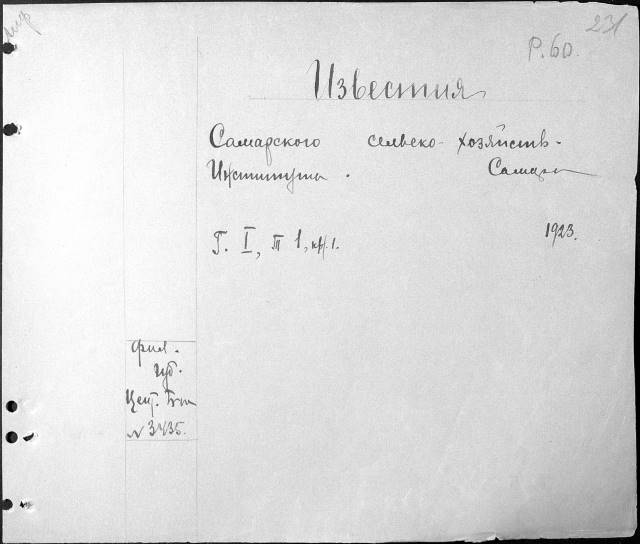 231
Р. 60.
Известия
Самарского сельско-хозяйств.
Института. Самара
Г. I, т 1, кн. 1. 1923.
фил.
губ.
Цент. Биб
№ 3435.